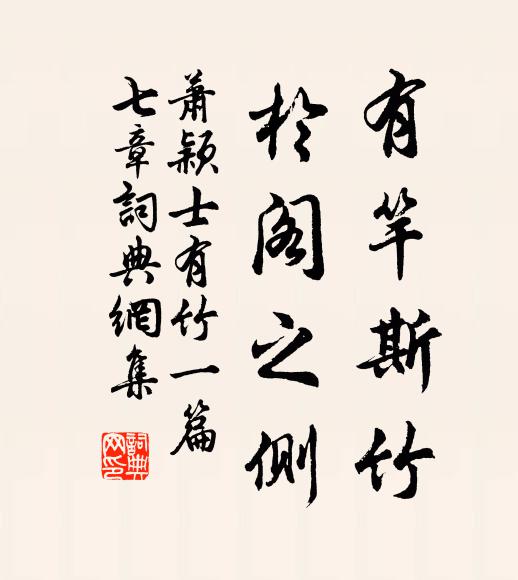 有竿斯竹
於阁之侧
萧颖士有竹一篇
七章詞典網集
詞典
网印